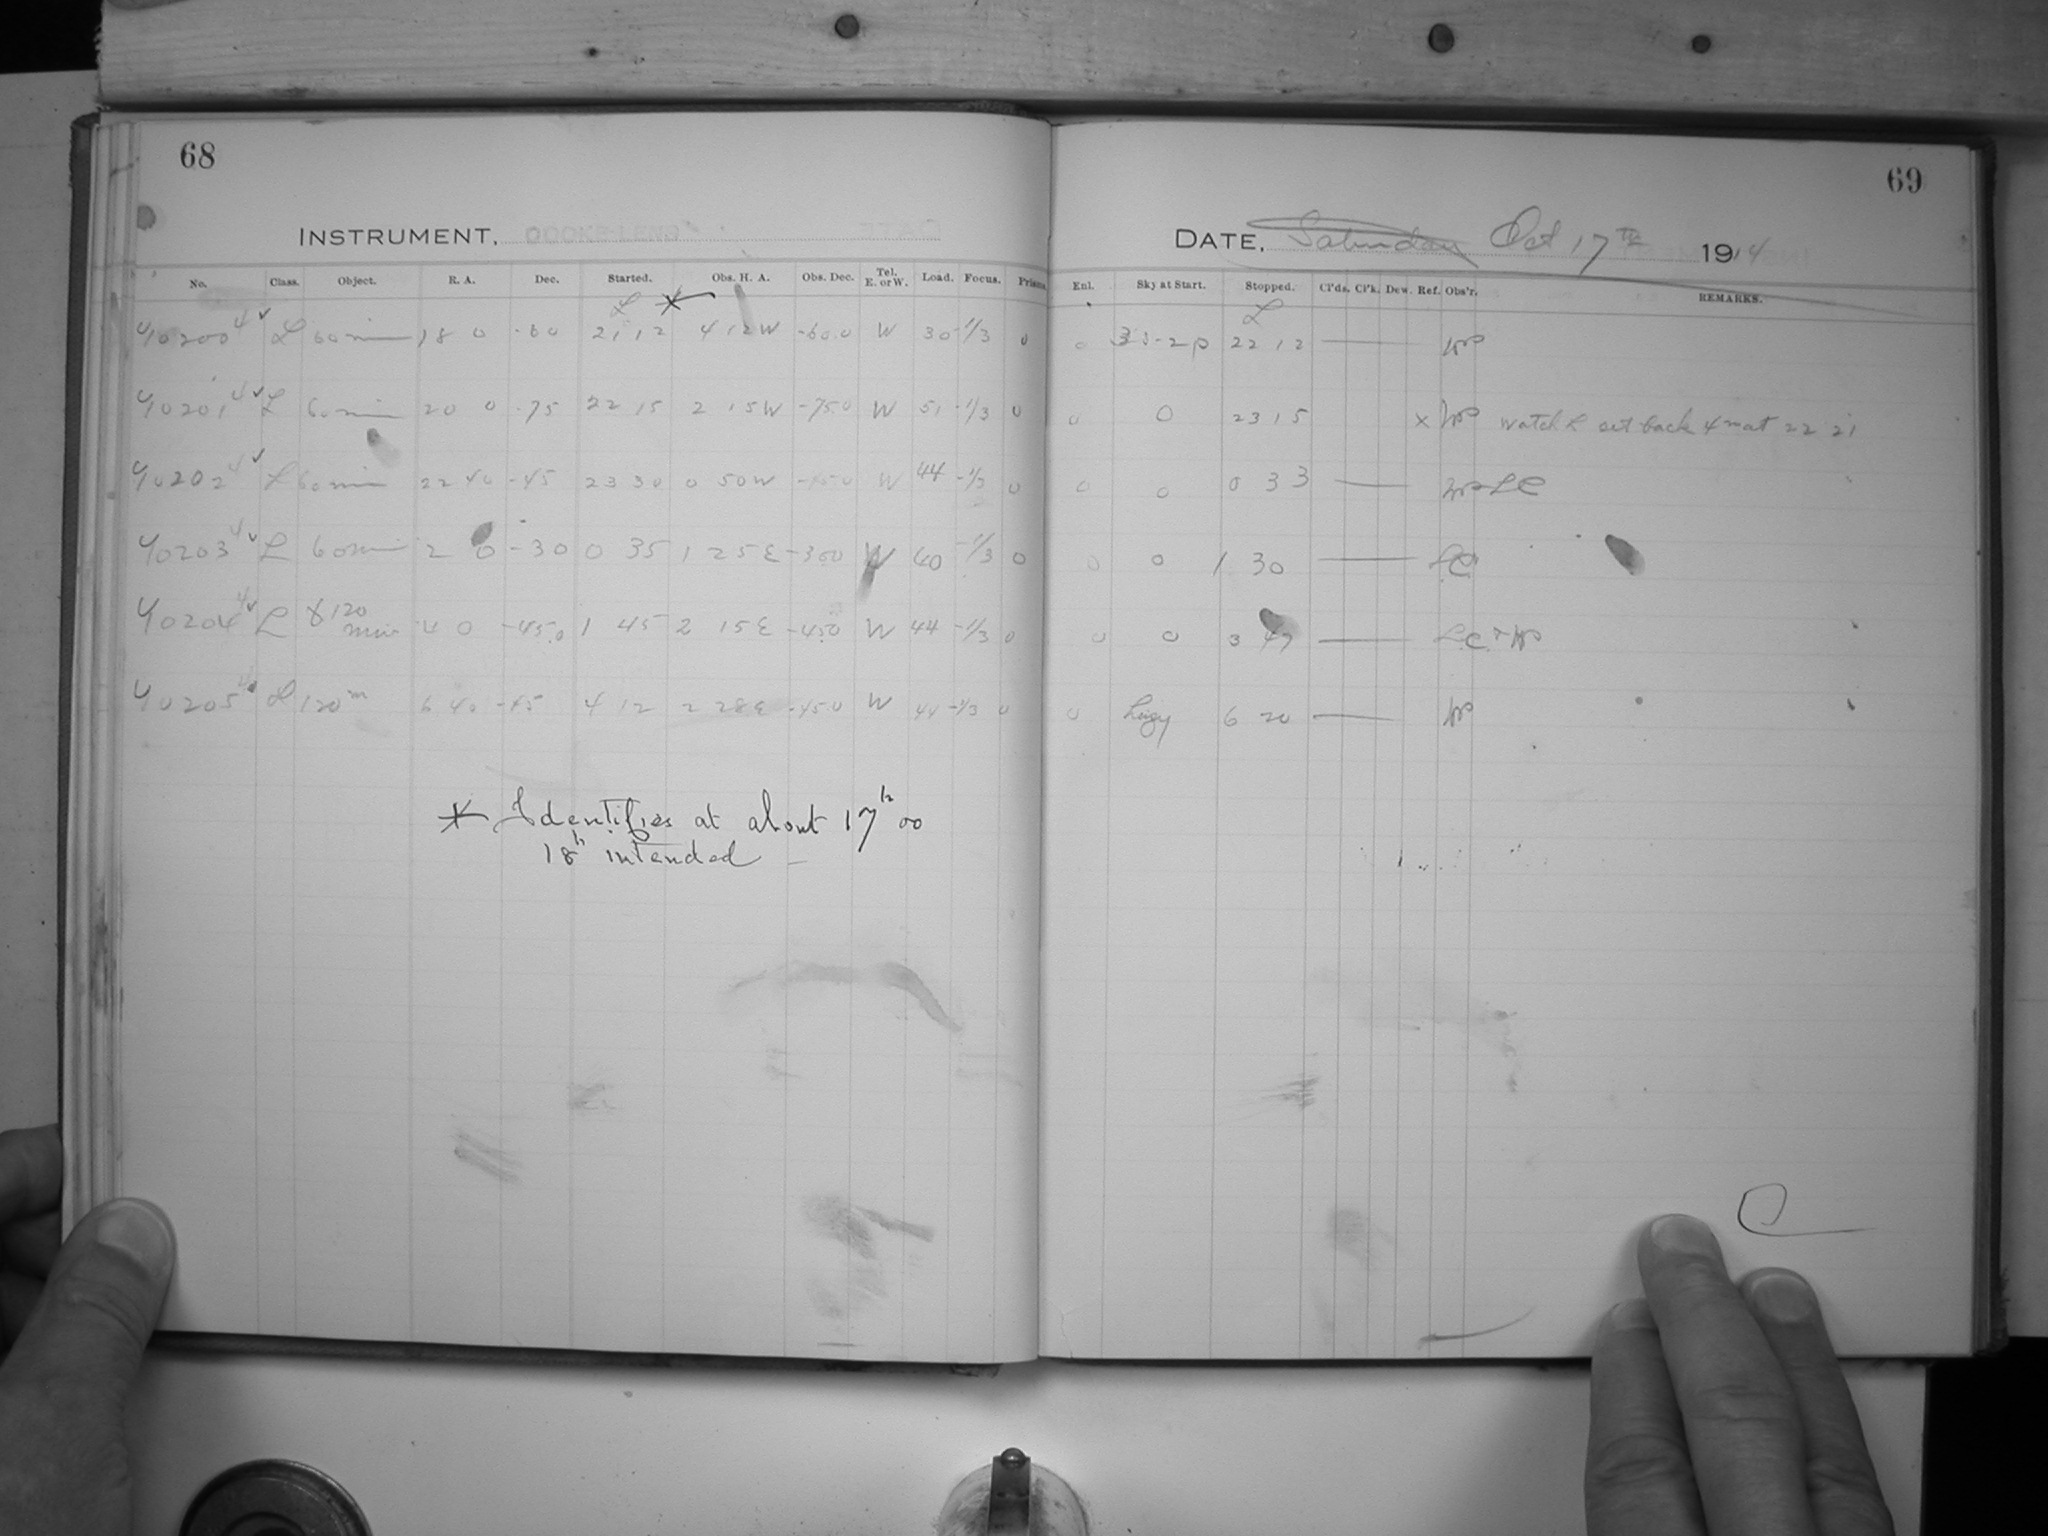 68
69
INSTRUMENT, COOKE LENS
DATE, Saturday Oct 17th 1914
No. Class. Object. R. A. Dec. Started. Obs. H. A. Obs. Dec. Tel. E. or W. Load. Focus. Prism. Enl. Sky at Start. Stopped. Cl'ds. Cl'k. Dew. Ref. Obs'r. REMARKS.
L * L
Y0200 4 ✓ L 60 min 18 0 -60 21 12 4 12 W -60.0 W 30 -1/3 0 0 22 12
Y0201 4 ✓ L 60 min 20 0 -75 22 15 2 15 W -75.0 W 51 -1/3 0 0 0 23 15 x watch L set back 4m at 22 21
Y0202 4 ✓ L 60 min 22 40 -45 23 30 0 50 W -45.0 W 44 -1/3 0 0 0 0 33 LC
Y0203 4 ✓ L 60 min 2 0 -30 0 35 1 25 E -300 W 60 -1/3 0 0 0 1 30 LC
Y0204 4 ✓ L 120 min 4 0 -45.0 1 45 2 15 E -450 W 44 -1/3 0 0 0 3 47
Y0205 4 L 120 m 6 40 -45 4 12 2 28 E -45.0 W 44 -1/3 0 0 Hazy 6 20
* Identifies at about 17h 00
18h intended